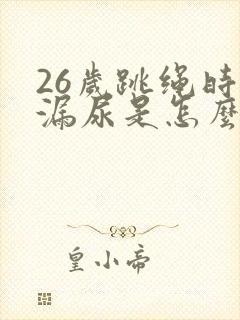 26歲跳绳時
漏尿是怎麼
皇小帝